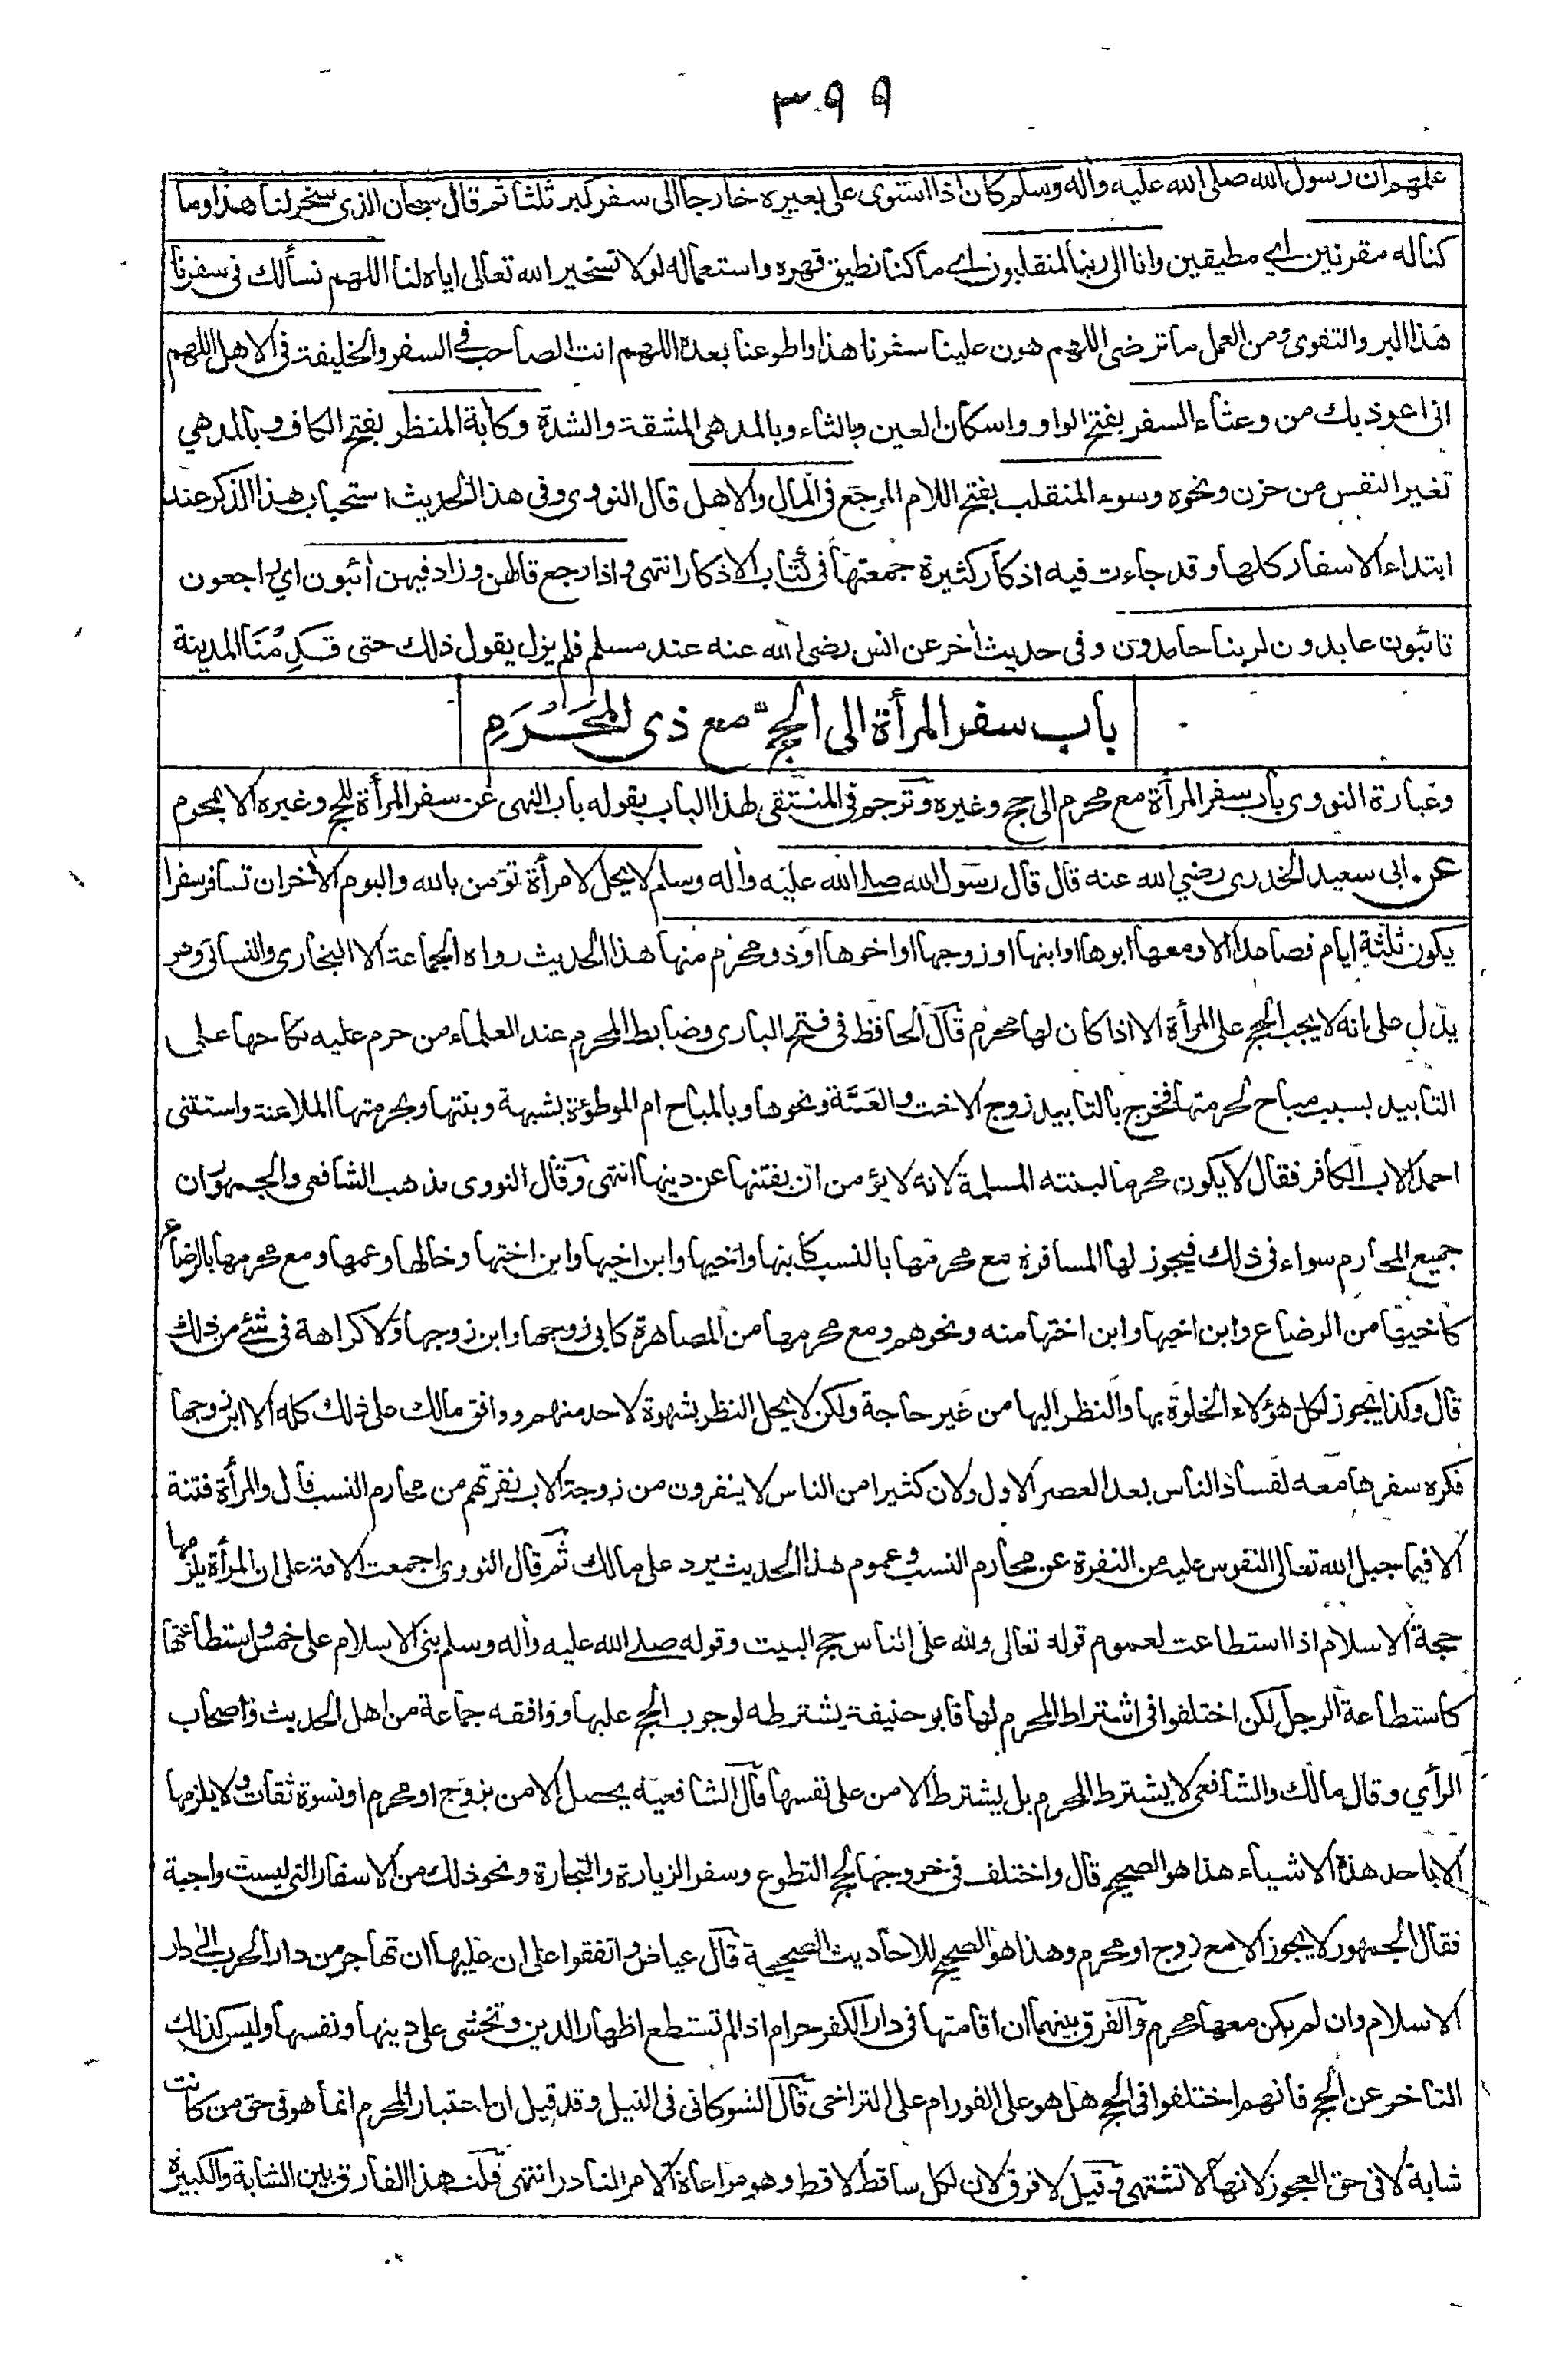 ٣٩٩
علمهم ان رسول الله صلى الله عليه واله وسلم كان اذا استوى على بعيره خارجا الى سفر كبر ثلثا ثم قال سبحان الذى سخر لنا هذا وما
كنا له مقرنين اي مطيقين وانا الى ربنا لمنقلبون اے ما كنا نطيق قهره واستعماله لولا تسخير الله تعالى اياه لنا اللهم نسألك فى سفرنا
هذا البر والتقوى ومن العمل ما ترضى اللهم هون علينا سفرنا هذا واطو عنا بعده اللهم انت الصاحب فى السفر والخليفة فى الاهل اللهم
انى اعوذ بك من وعثاء السفر بفتح الواو واسكان العين وبالثاء وبالمد هى المشقة والشدة وكآبة المنظر بفتح الكاف وبالمد هي
تغير النفس من حزن ونحوه وسوء المنقلب بفتح اللام المرجع فى المال والاهل قال النووى وفى هذا الحديث استحباب هذا الذكر عند
ابتداء الاسفار كلها وقد جاءت فيه اذكار كثيرة جمعتها فى كتاب الاذكار انتهى واذا رجع قالهن وزاد فيهن آئبون اي راجعون
تائبون عابدون لربنا حامدون وفى حديث آخر عن انس رضى الله عنه عند مسلم فلم يزل يقول ذلك حتى قَدِمْنَا المدينة
باب سفر المرأة الى الحجّ مع ذى المَحْرَمِ
وعبارة النووى باب سفر المرأة مع محرم الى حج وغيره وترجم فى المنتقى لهذا الباب بقوله باب النهى عن سفر المرأة للحج وغيره الا بمحرم
عن ابى سعيد الخدرى رضي الله عنه قال قال رسول الله صلے الله عليه واله وسلم لا يحل لامرأة تؤمن بالله واليوم الآخر ان تسافر سفرا
يكون ثلثة ايام فصاعدا الا ومعها ابوها او ابنها او زوجها او اخوها او ذو محرم منها هذا الحديث رواه الجماعة الا البخارى والنسائى وهو
يدل على انه لا يجب الحج على المرأة الا اذا كان لها محرم قال الحافظ فى فتح البارى وضابط المحرم عند العلماء من حرم عليه نكاحها على
التابيد بسبب مباح لحرمتها فخرج بالتابيد زوج الاخت والعمّة ونحوها وبالمباح ام الموطؤة بشبهة وبنتها وبحرمتها الملاعنة واستثنى
احمد الاب الكافر فقال لا يكون محرما لبنته المسلمة لانه لا يؤمن ان يفتنها عن دينها انتهى وقال النووى مذهب الشافعى والجمهور ان
جميع المحارم سواء فى ذلك فيجوز لها المسافرة مع محرمها بالنسب كابنها واخيها وابن اخيها وابن اختها وخالها وعمها ومع محرمها بالرضاع
كاخيها من الرضاع وابن اخيها وابن اختها منه ونحوهم ومع محرمها من المصاهرة كابى زوجها وابن زوجها ولا كراهة فى شئ من ذلك
قال وكذا يجوز لكل هؤلاء الخلوة بها والنظر اليها من غير حاجة ولكن لا يحل النظر بشهوة لاحد منهم ووافق مالك على ذلك كله الا ابن زوجها
فكره سفرها معه لفساد الناس بعد العصر الاول ولان كثيرا من الناس لا ينفرون من زوجة الاب نفرتهم من محارم النسب قال والمرأة فتنة
الا فيما جبل الله تعالى النفوس عليه من النفرة عن محارم النسب وعموم هذا الحديث يرد على مالك ثم قال النووى اجمعت الامة على ان المرأة يلزمها
حجة الاسلام اذا استطاعت لعموم قوله تعالى ولله على الناس حج البيت وقوله صلے الله عليه واله وسلم بنى الاسلام على خمس واستطاعتها
كاستطاعة الرجل لكن اختلفوا فى اشتراط المحرم لها فابو حنيفة يشترطه لوجوب الحج عليها ووافقه جماعة من اهل الحديث واصحاب
الرأي وقال مالك والشافعى لا يشترط المحرم بل يشترط الامن على نفسها قال الشافعية يحصل الامن بزوج او محرم او نسوة ثقات ولا يلزمها
الا باحد هذه الاشياء هذا هو الصحيح قال واختلف فى خروجها لحج التطوع وسفر الزيارة والتجارة ونحو ذلك من الاسفار التى ليست واجبة
فقال الجمهور لا يجوز الا مع زوج او محرم وهذا هو الصحيح للاحاديث الصحيحة قال عياض واتفقوا على ان عليها ان تهاجر من دار الحرب الى دار
الاسلام وان لم يكن معها محرم والفرق بينهما ان اقامتها فى دار الكفر حرام اذا لم تستطع اظهار الدين وتخشى على دينها ونفسها وليس كذلك
التاخر عن الحج فانهم اختلفوا فى الحج هل هو على الفور ام على التراخى قال الشوكانى فى النيل وقد قيل ان اعتبار المحرم انما هو فى حق من كانت
شابة لا فى حق العجوز لانها لا تشتهى وقيل لا فرق لان لكل ساقط لاقط وهو مراعاة الامر النادر انتهى قلت هذا الفارق بين الشابة والكبيرة